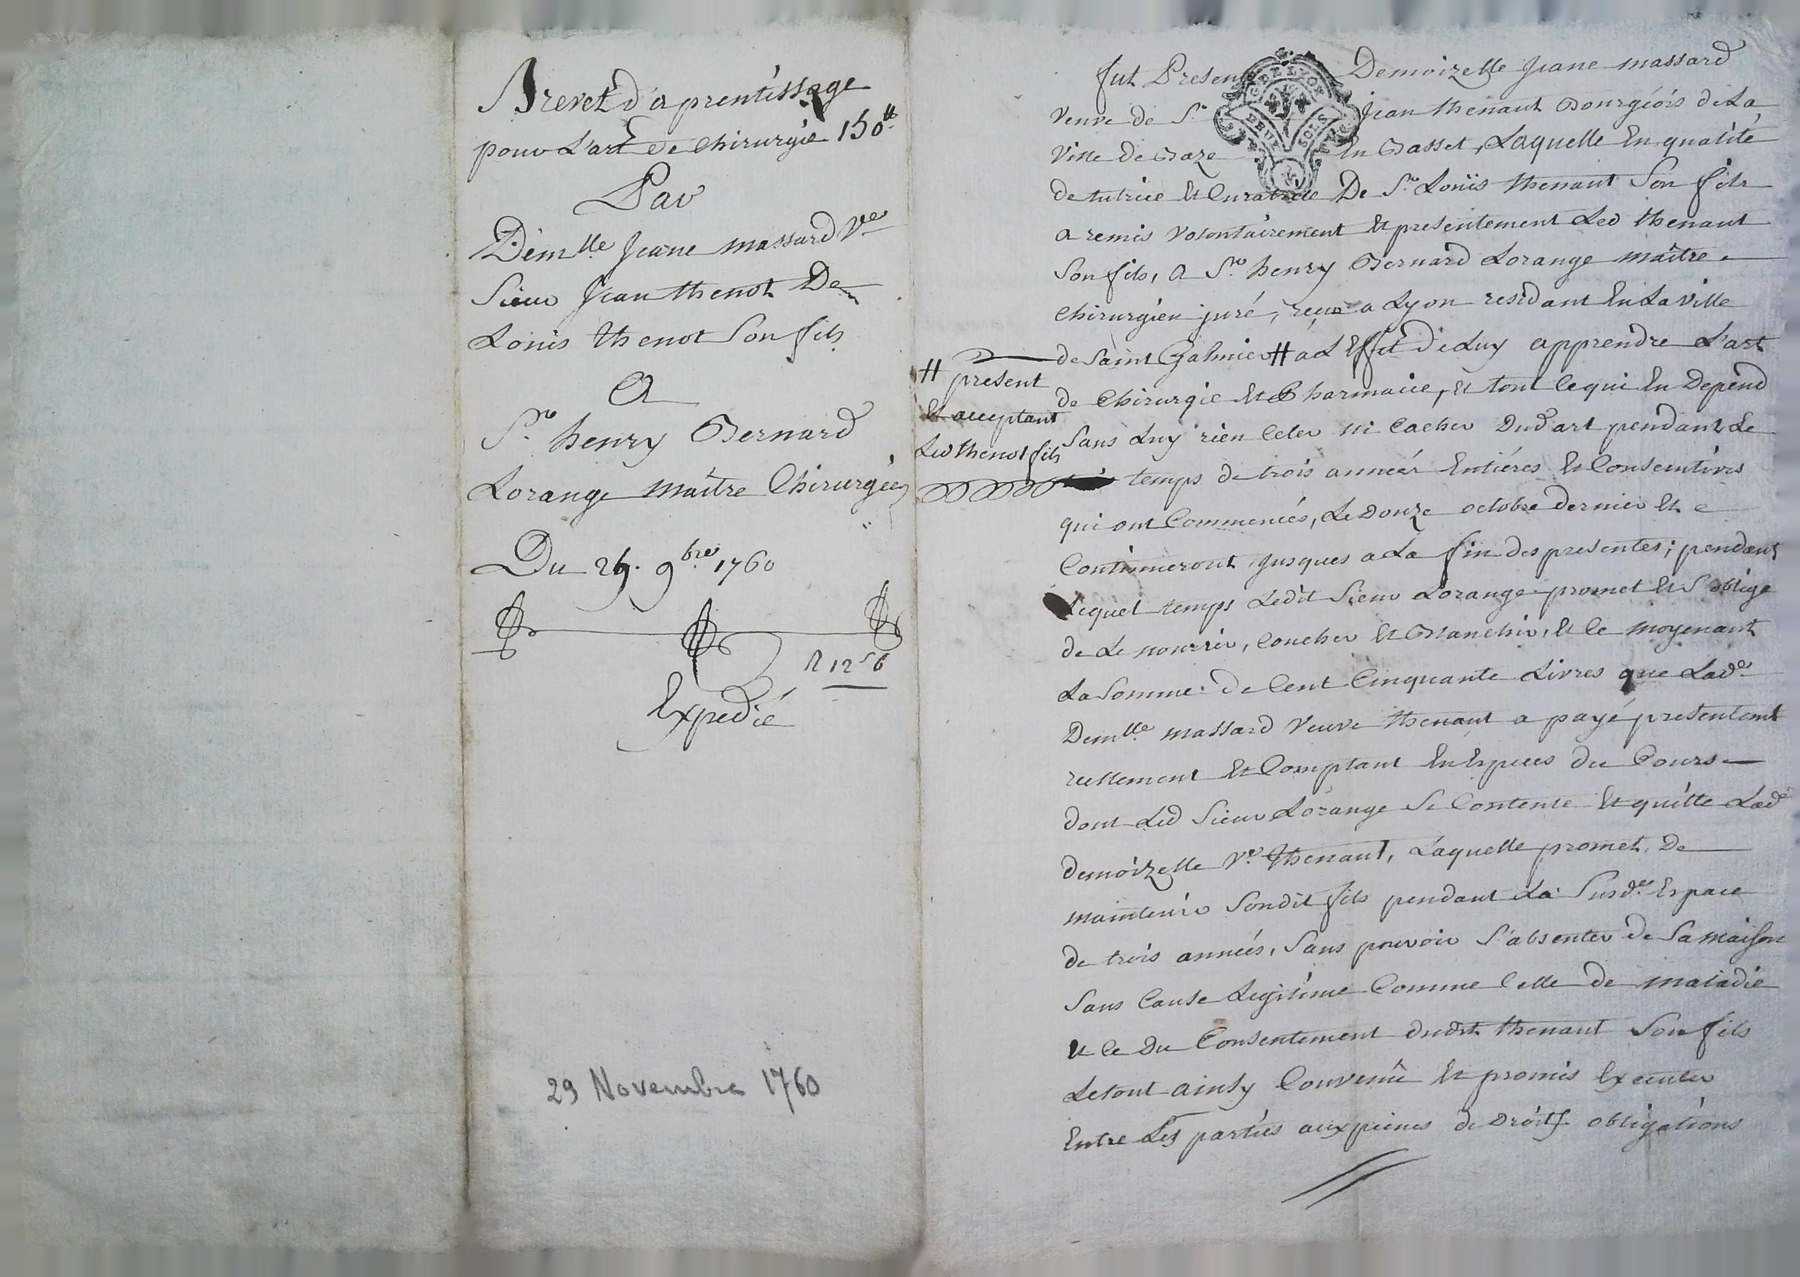 Brevet d'aprentissage
pour L'art de chirurgie 150#
Par
Demlle Jeane massard Vve
Sieur Jean thenot De
Louis thenot son fils
A
Sr henry Bernard
Lorange maitre Chirurgien
Du 29. 9bre 1760
R 12s 6
Expedié
29 Novembre 1760
fut Presente Demoizelle Jeane massard
veuve de Sr Jean thenaut Bourgeois de La
Ville de Baze En Basset, Laquelle En qualité
de tutrice Et Curatrice De Sr Loüis thenaut son fils
a remis volontairement Et presentement Led thenaut
son fils, a Sr henry Bernard Lorange maitre
chirurgien juré, reçu a Lyon residant En La ville
de Saint Galmier # a L'Effet de Luy apprendre L'art
# present
Et acceptant
Led thenot fils
de Chirurgie Et Pharmacie, Et tout ce qui En Depend
sans Luy rien Celer ni Cacher Dud art pendant Le
temps de trois années Entiéres Et Consecutives
qui ont Commencés, Le Douze octobre dernier Et
Continueront jusques a La fin des presentes; pendant
Lequel temps Ledit Sieur Lorange promet Et S'oblige
de Le nourrir, Coucher Et Blanchir, Et Ce moyenant
La Somme de Cent Cinquante Livres que Lade
Demlle massard veuve thenaut a payé presentemt
reellement Et Comptant En Espèces du Cours
dont Led Sieur Lorange Se Contente Et quitte Lad
demoizelle Ve thenaut, Laquelle promet De
maintenir Sondit fils pendant La Susde Espace
de trois années, Sans pouvoir S'absenter de Sa maison
Sans Cause Legitime Comme Celle de maladie
Et Ce Du Consentement dudit thenaut Son fils
Le tout ainsy Convenû Et promis Executer
Entre Les parties aux peines de Droit obligations
GDE LYON
DEUX SOLS